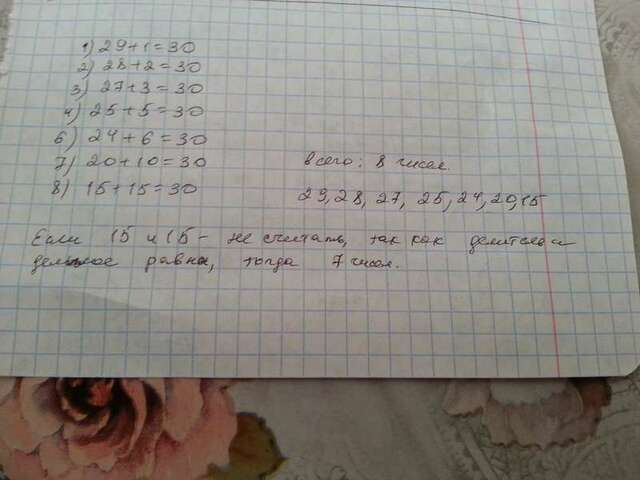 1) 29+1=30
2) 28+2=30
3) 27+3=30
4) 25+5=30
6) 24+6=30
7) 20+10=30
8) 15+15=30
всего: 8 чисел.
29, 28, 27, 25, 24, 20, 15
Если 15 и 15 - не считать, так как делитель и
делимое равны, тогда 7 чисел.